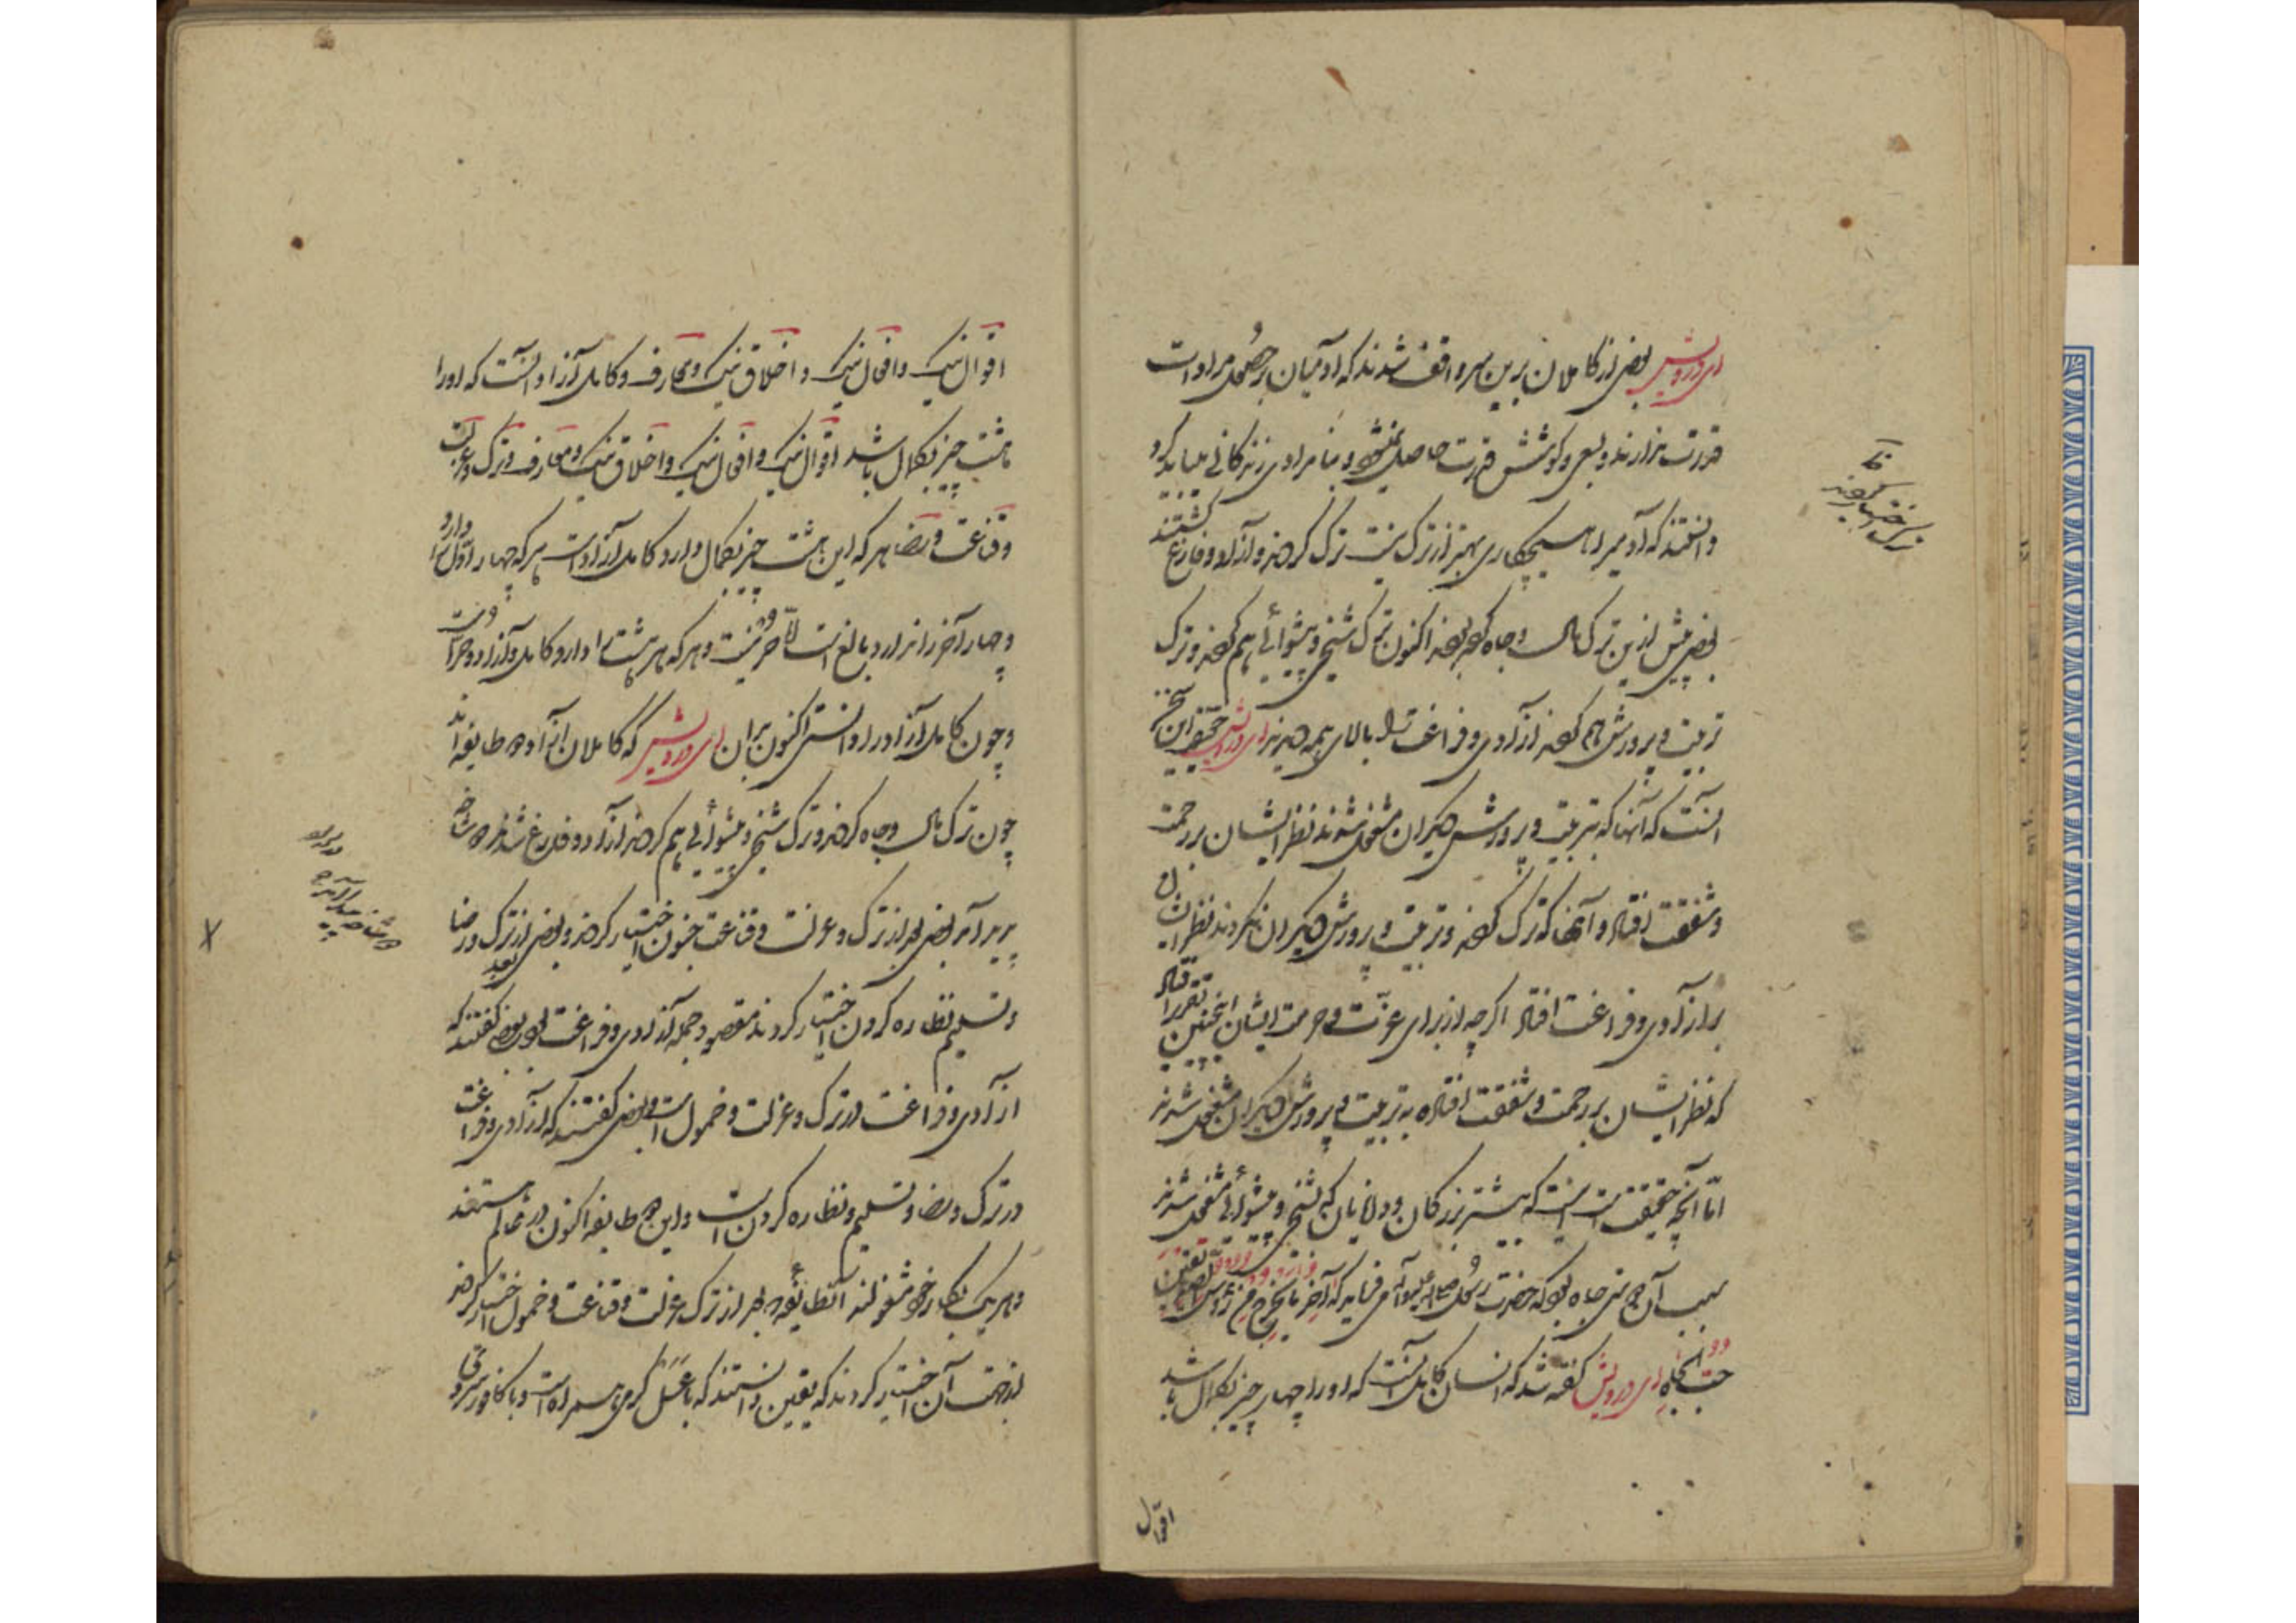 ای درویش بعضی از کاملان برین سر واقف شدند که آدمیان بر حصول مرادات
قدرت ندارند و بسعی و کوشش قدرت حاصل نمیشود و بنامرادی زندگانی میباید کرد
دانستند که آدمیرا هیچکاری بهتر از ترک نیست ترک کردند و آزاد و فارغ گشتند
بعضی پیش ازین ترک مال و جاه کرده بودند اکنون ترک شیخی و پیشوائی هم کردند و ترک
تربیت و پرورش هم کردند آزادی و فراغت بالای همه دیدند ای درویش تحقیق این سخن
آنست که آنها که بتربیت و پرورش دیگران مشغول شدند نظر ایشان بر رحمت
و شفقت افتاد و آنها که ترک کردند و تربیت و پرورش دیگران نکردند نظر ایشان
بر آزادی و فراغت افتاد اگر چه از برای عزت و حرمت ایشان اینچنین تقریر افتاد
که نظر ایشان بر رحمت و شفقت افتاده بتربیت و پرورش دیگران مشغول شدند
اما آنچه حقیقتست اینست که بیشتر بزرگان و دانایان که بشیخی و پیشوائی مشغول شدند
سبب آن هم حب جاه بود که حضرت رسول صلی الله علیه و آله می فرماید که آخر ما یخرج من رؤس الصدیقین
حب الجاه ای درویش گفته شد که انسان کامل آنست که او را چهار چیز بکمال باشد
اقوال
ترک اختیار کردند
اقوال نیک و افعال نیک و اخلاق نیک و معارف و کامل آزاد آنست که او را
هشت چیز بکمال باشد اقوال نیک و افعال نیک و اخلاق نیک و معارف و ترک و عزلت
و قناعت و رضا هر که این هشت چیز بکمال دارد کامل آزادست هر که چهار اول را دارد
و چهار آخر را ندارد بالغ است اما حر نیست و هر که هر هشت را دارد کامل و آزاد و حر است
و چون کامل آزاد را دانستی اکنون بدان ای درویش که کاملان آزاد دو طایفه اند
چون ترک مال و جاه کردند و ترک شیخی و پیشوائی هم کردند آزاد و فارغ شدند دو شاخ
پدید آمد بعضی بعد از ترک عزلت و قناعت و خمول اختیار کردند و بعضی بعد از ترک رضا
و تسلیم و نظاره کردن اختیار کردند مقصود جمله آزادی و فراغت بود بعضی گفتند که
آزادی و فراغت در ترک و عزلت و خمول است و بعضی گفتند که آزادی و فراغت
در ترک و رضا و تسلیم و نظاره کردن است و این دو طایفه اکنون در عالم هستند
و هر یک بکار خود مشغولند آن طایفه که بعد از ترک عزلت و قناعت و خمول اختیار کردند
از جهت آن اختیار کردند که یقین دانستند که با عسل گرمی همراه است و با کافور سردی
دو شاخ پیدا آمد
X